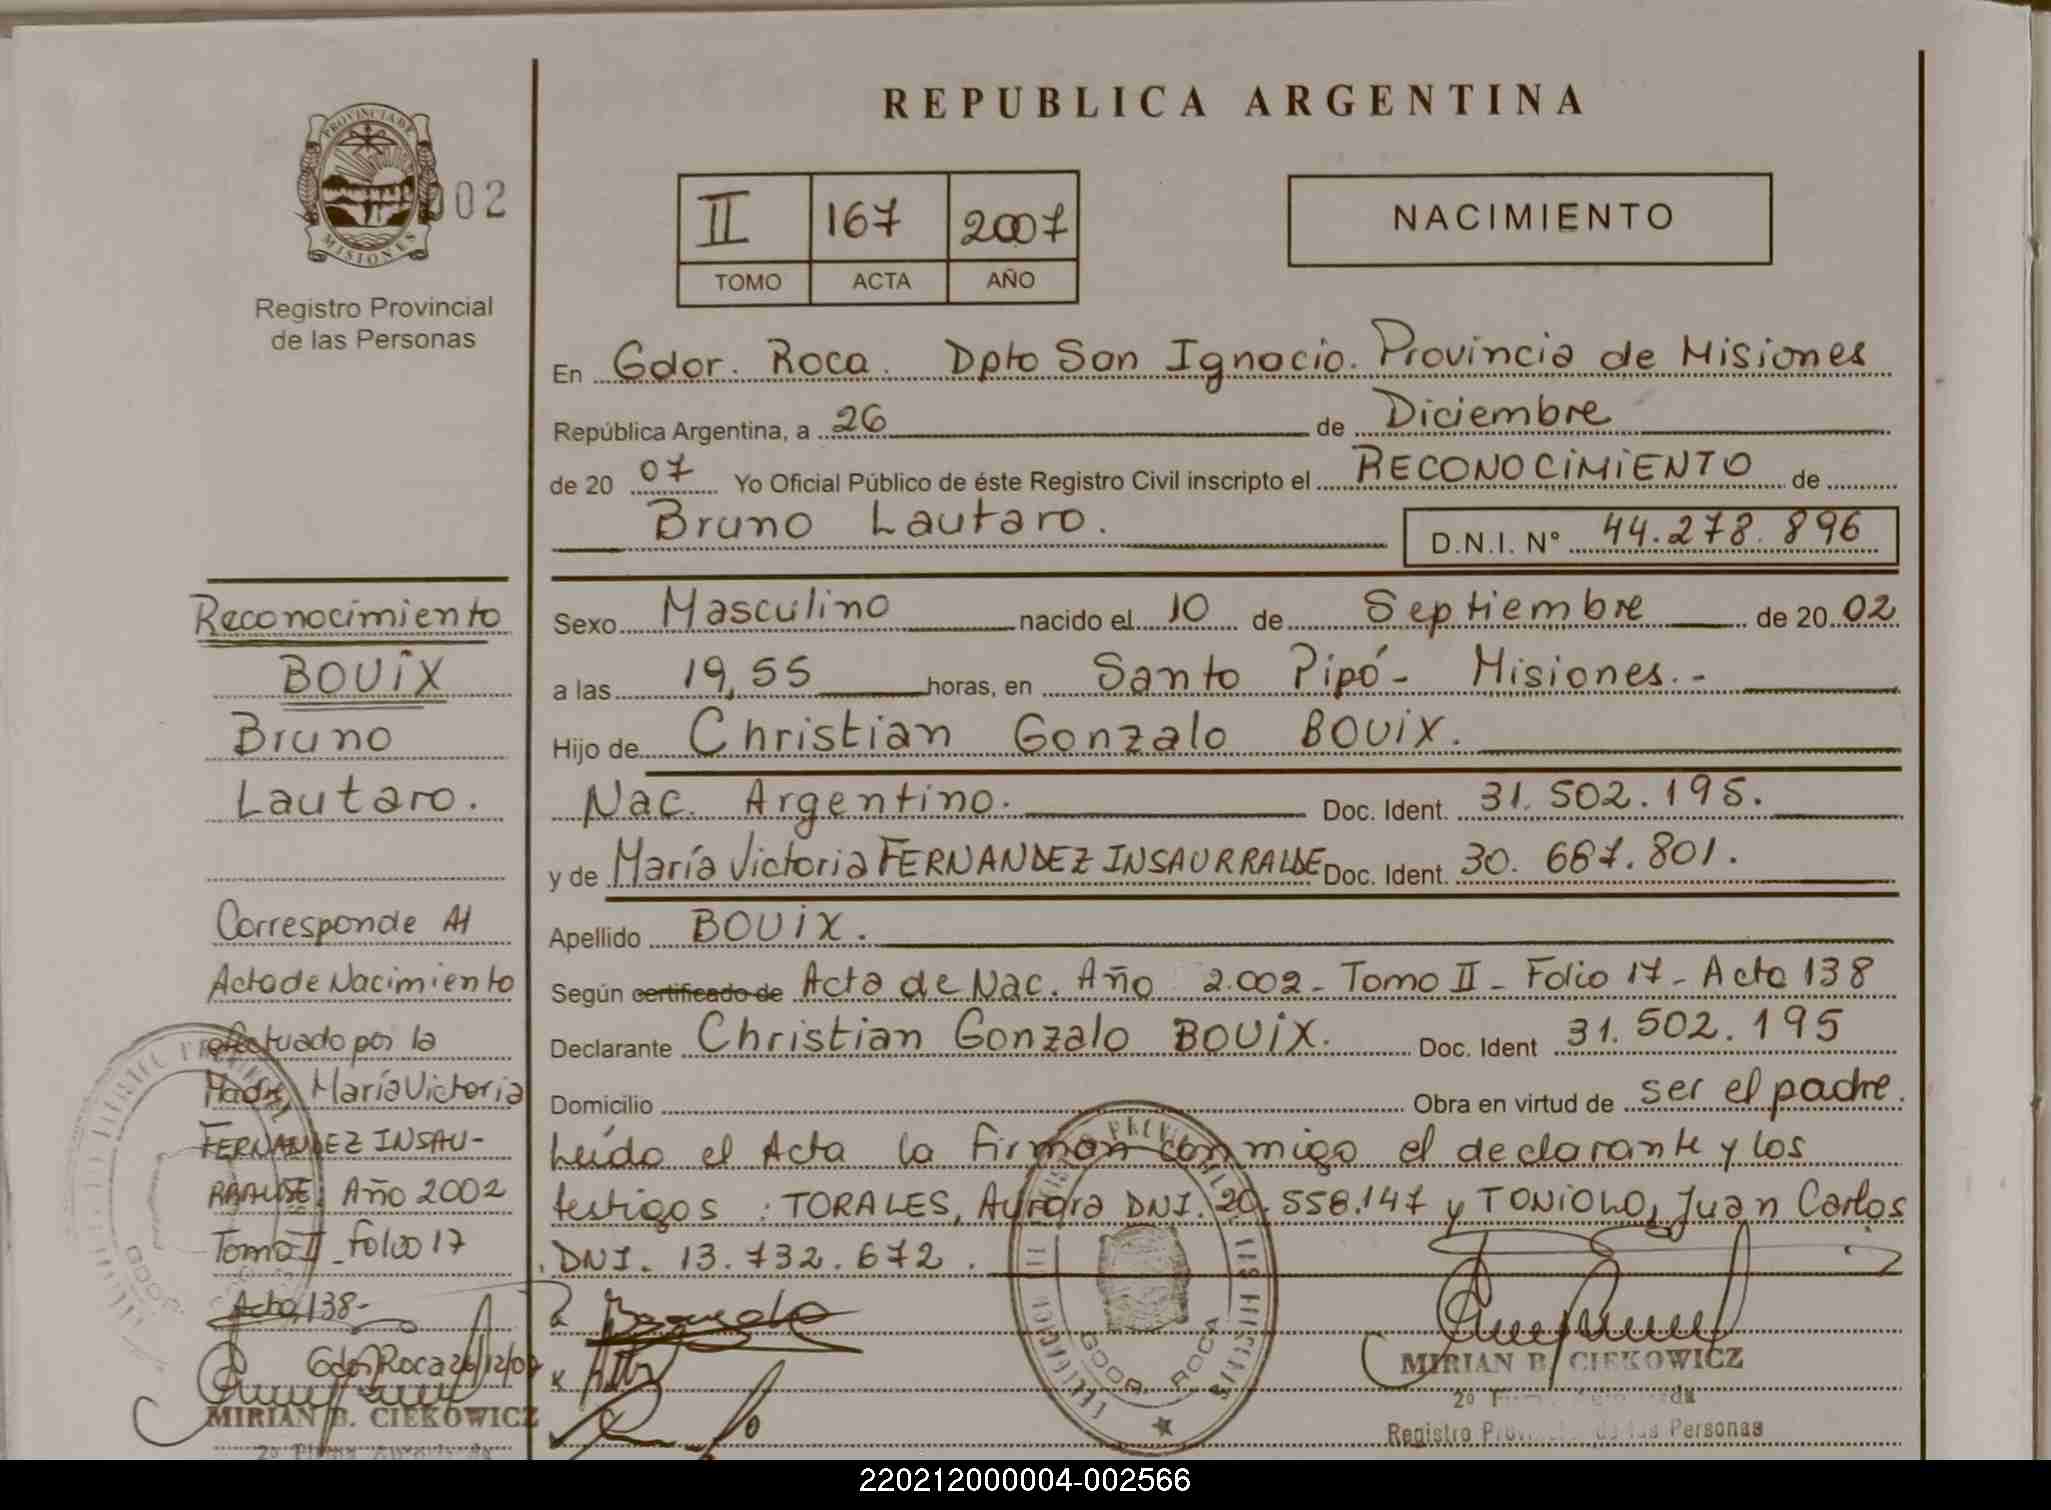 REPUBLICA ARGENTINA
PROVINCIA DE
MISIONES
002
Registro Provincial
de las Personas
II 167 2007
TOMO ACTA AÑO
NACIMIENTO
En Gdor. Roca. Dpto San Ignacio. Provincia de Misiones
República Argentina, a 26 de Diciembre
de 20 07 Yo Oficial Público de éste Registro Civil inscripto el RECONOCIMIENTO de
Bruno Lautaro.
D.N.I. N° 44.278.896
Sexo Masculino nacido el 10 de Septiembre de 20 02
a las 19,55 horas, en Santo Pipó - Misiones. -
Hijo de Christian Gonzalo BOUIX.
Nac. Argentino. Doc. Ident. 31.502.195.
y de María Victoria FERNANDEZ INSAURRALDE Doc. Ident. 30.667.801.
Apellido BOUIX.
Según certificado de Acta de Nac. Año 2.002 - Tomo II - Folio 17 - Acta 138
Declarante Christian Gonzalo BOUIX. Doc. Ident 31.502.195
Domicilio Obra en virtud de ser el padre.
Leído el Acta la firman conmigo el declarante y los
testigos : TORALES, Aurora DNI. 20.558.147 y TONIOLO, Juan Carlos
DNI. 13.732.672.
GDOR. ROCA
MIRIAN B. CIEKOWICZ
Registro Personas
Reconocimiento
BOUIX
Bruno
Lautaro.
Corresponde Al
Acta de Nacimiento
efectuado por la
Madre, María Victoria
FERNANDEZ INSAU-
RRALDE. Año 2002
Tomo II - Folio 17
Acta 138-
Gdor Roca 26/12/07
MIRIAN B. CIEKOWICZ
220212000004-002566